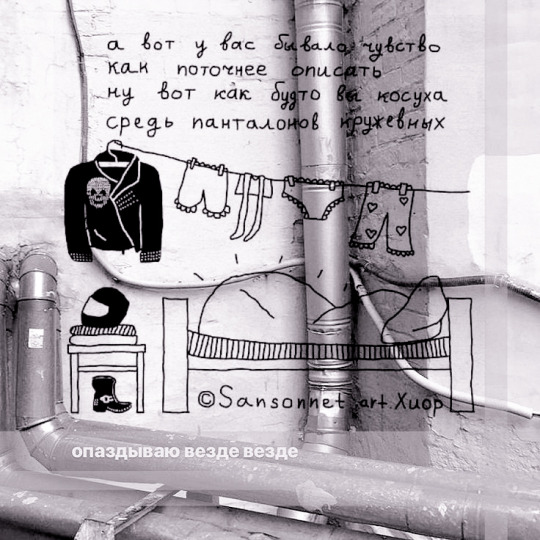 а вот у вас бывало чувство
как поточнее описать
ну вот как будто вы косуха
средь панталонов кружевных
©Sansonnet art.Хиор
опаздываю везде везде